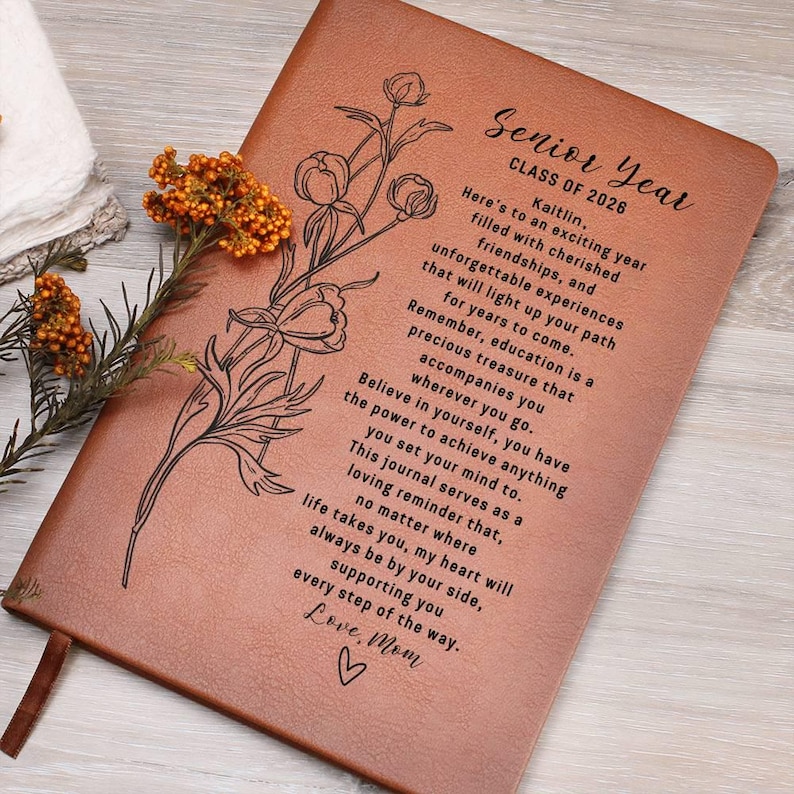 Senior Year
CLASS OF 2026
Kaitlin,
Here's to an exciting year
filled with cherished
friendships, and
unforgettable experiences
that will light up your path
for years to come.
Remember, education is a
precious treasure that
accompanies you
wherever you go.
Believe in yourself, you have
the power to achieve anything
you set your mind to.
This journal serves as a
loving reminder that,
no matter where
life takes you, my heart will
always be by your side,
supporting you
every step of the way.
Love, Mom